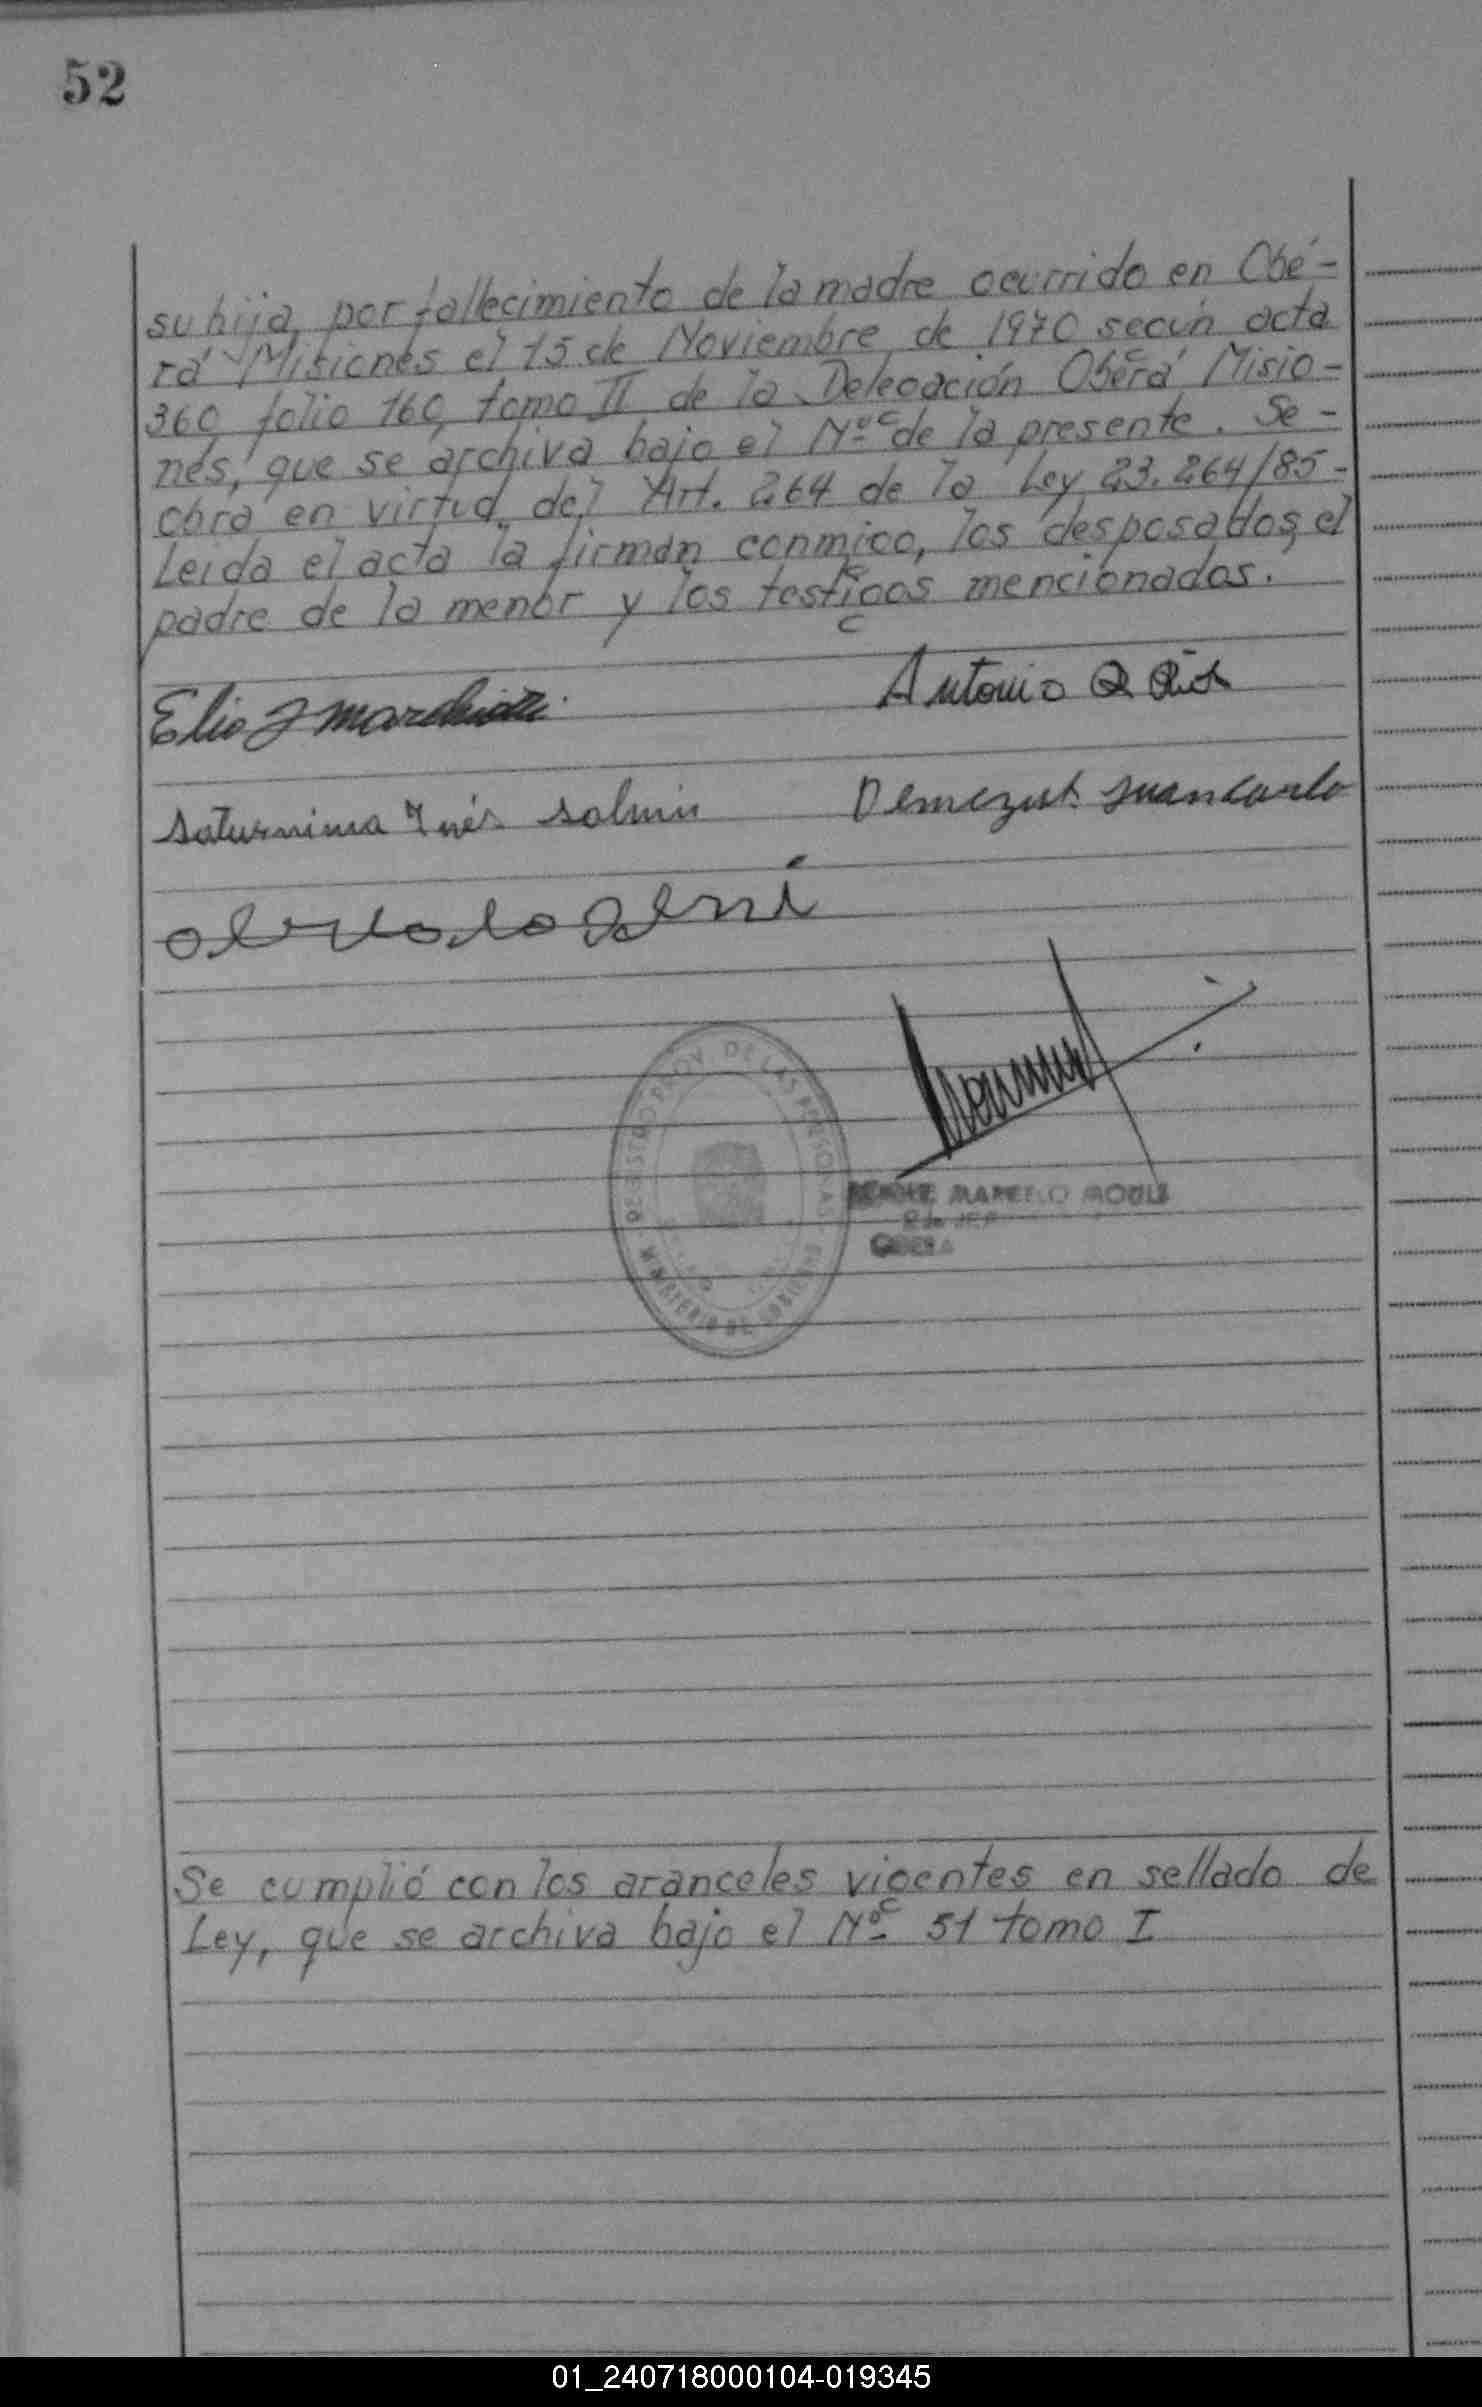 52
su hija, por fallecimiento de la madre ocurrido en Obe-
rá Misiones el 15 de Noviembre de 1970 según acta
360 folio 160, tomo II de la Delegación Oberá Misio-
nes, que se archiva bajo el Nº de la presente. Se
obra en virtud del Art. 264 de la Ley 23.264/85-
Leída el acta la firman conmigo, los desposados, el
padre de la menor y los testigos mencionados.
Elio J
Antonio
Saturnina Inés
Juan Carlo
REGISTRO PROV. DE LAS PERSONAS
MINISTERIO DE GOBIERNO
MARCELO
Se cumplió con los aranceles vigentes en sellado de
Ley, que se archiva bajo el Nº 51 tomo I
01_240718000104-019345